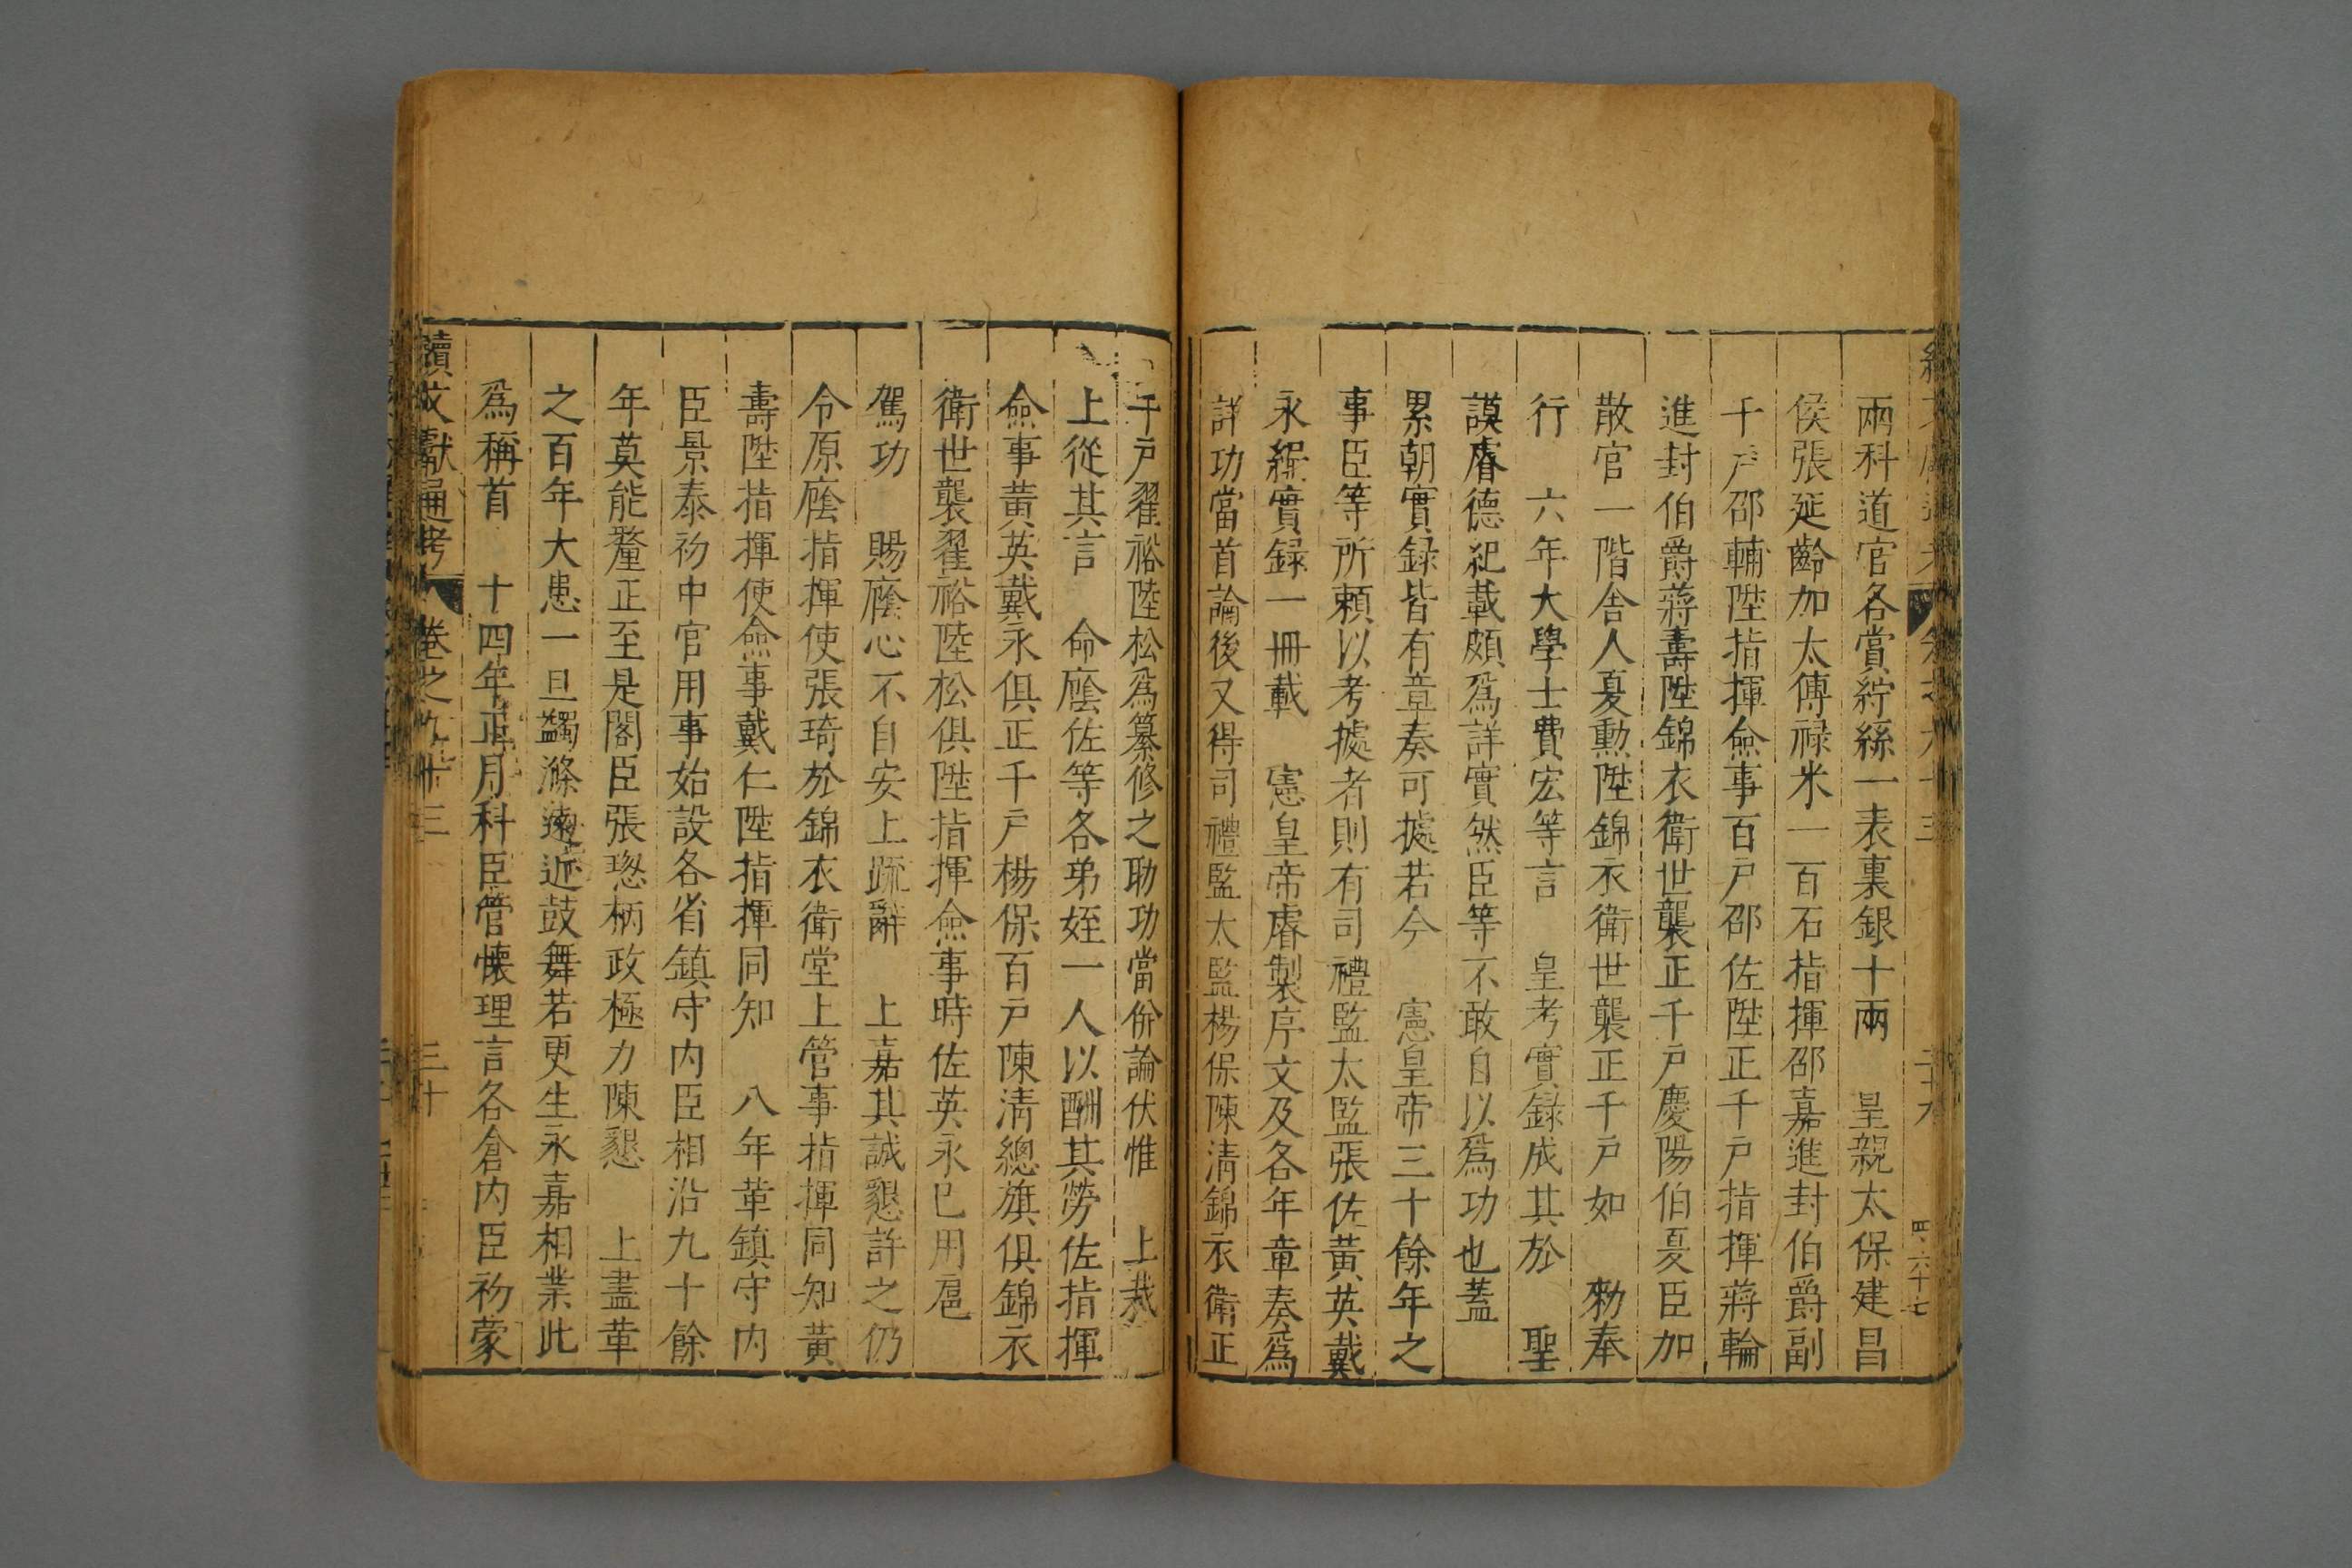 兩科道官各賞紵絲一表裏銀十兩　皇親太保建昌
侯張延齡加太傅祿米一百石指揮邵嘉進封伯爵副
千戶邵輔陞指揮僉事百戶邵佐陞正千戶指揮蔣輪
進封伯爵蔣壽陞錦衣衛世襲正千戶慶陽伯夏臣加
散官一階舍人夏勲陞錦衣衛世襲正千戶如　勑奉
行　六年大學士費宏等言　皇考實錄成其於　聖
謨睿德紀載頗爲詳實然臣等不敢自以爲功也蓋
累朝實錄皆有章奏可據若今　憲皇帝三十餘年之
事臣等所賴以考據者則有司禮監太監張佐黃英戴
永纂實錄一冊載　憲皇帝睿製序文及各年章奏爲
詳功當首論後又得司禮監太監楊保陳清錦衣衛正
千戶翟裕陸松爲纂修之助功當併論伏惟　上裁
上從其言　命廕佐等各弟姪一人以酬其勞佐指揮
僉事黃英戴永俱正千戶楊保百戶陳清總旗俱錦衣
衛世襲翟裕陸松俱陞指揮僉事時佐英永已用扈
駕功　賜廕心不自安上疏辭　上嘉其誠懇許之仍
令原廕指揮使張琦於錦衣衛堂上管事指揮同知黃
壽陞指揮使僉事戴仁陞指揮同知　八年革鎮守內
臣景泰初中官用事始設各省鎮守內臣相沿九十餘
年莫能釐正至是閣臣張璁柄政極力陳懇　上盡革
之百年大患一旦蠲滌遠近鼓舞若更生永嘉相業此
爲稱首　十四年正月科臣管懷理言各倉內臣初蒙
續文獻通考　卷之九十三　三十